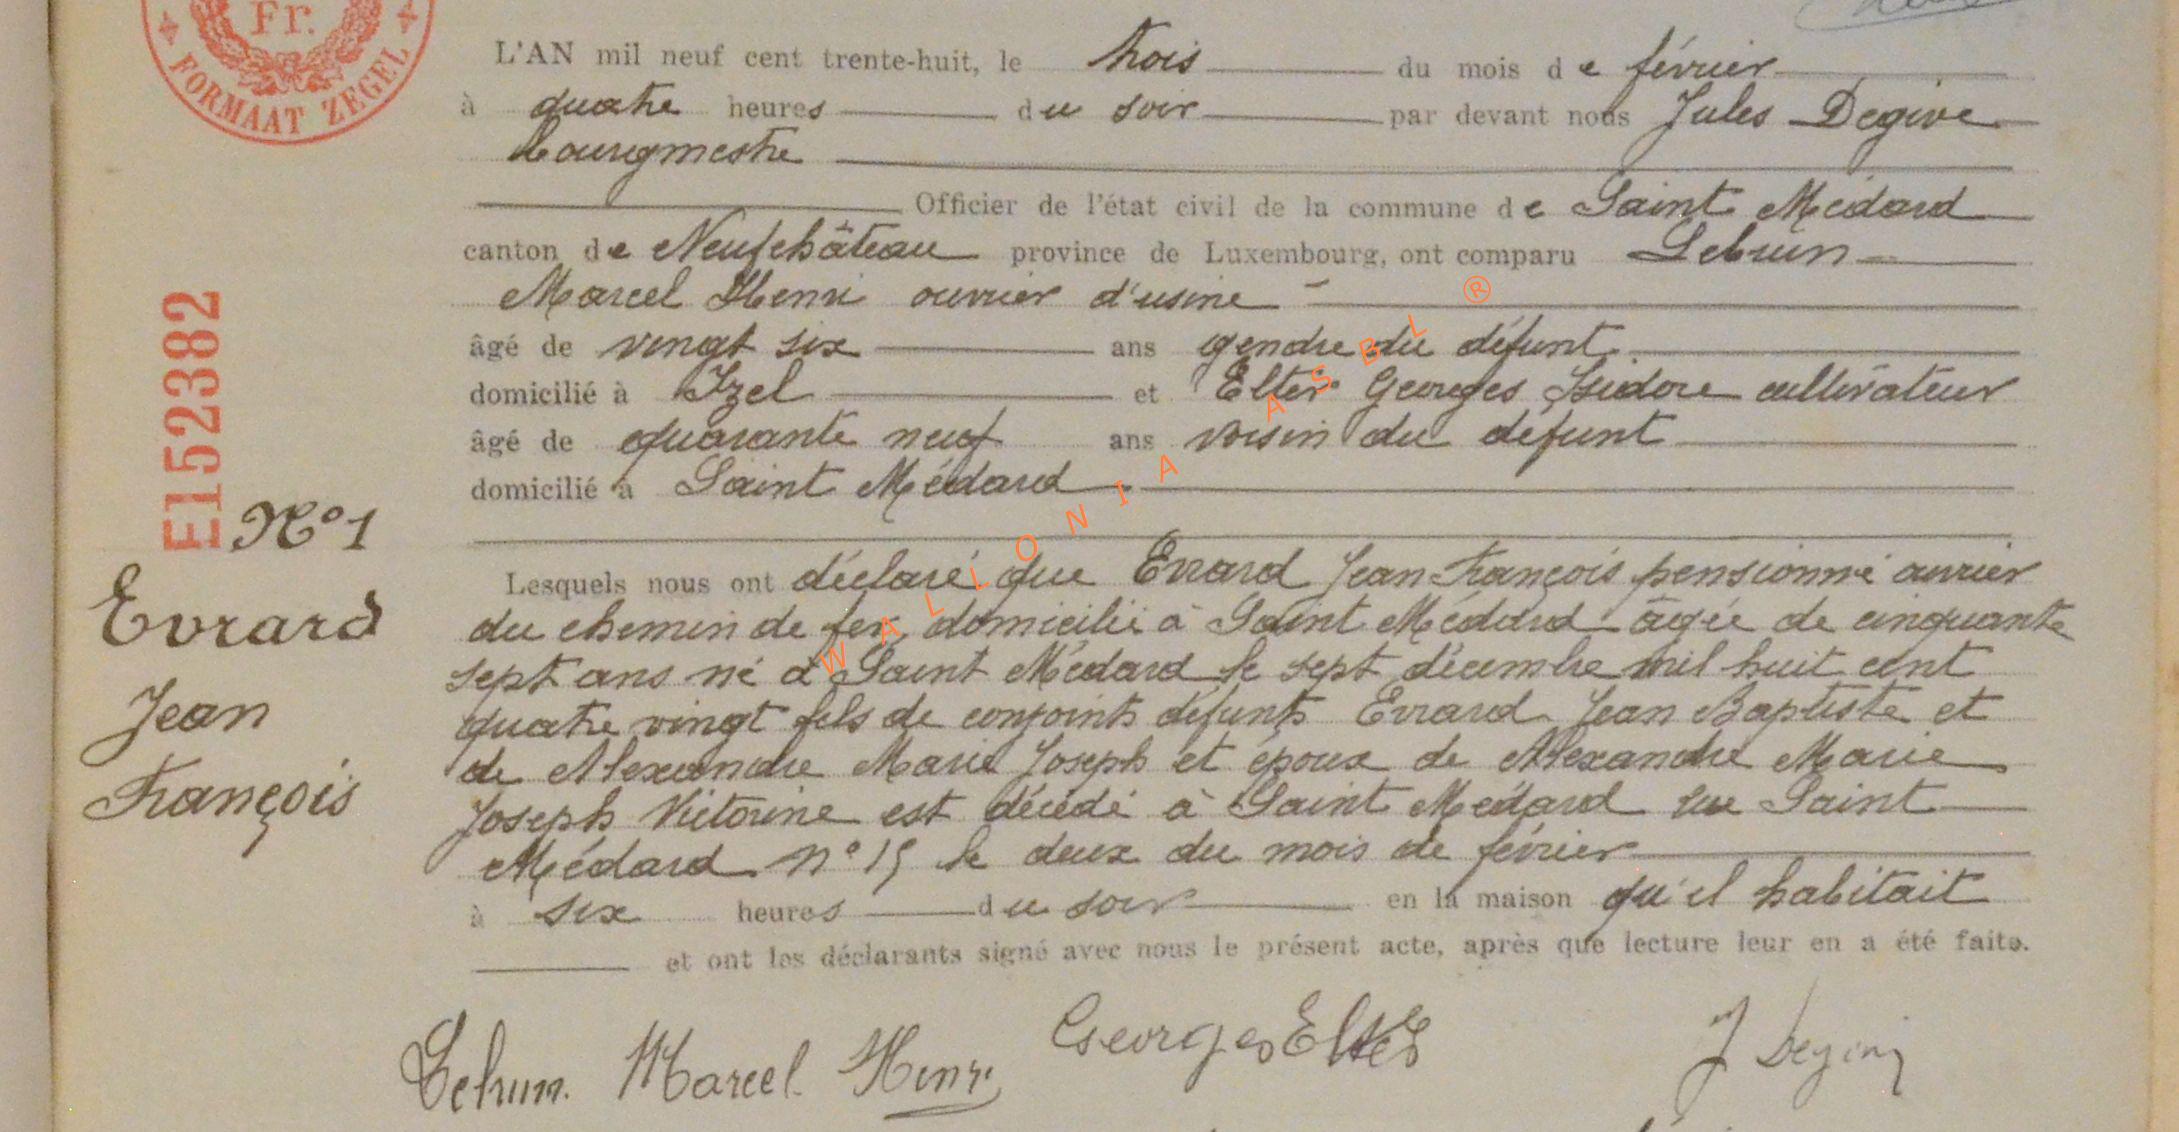 Fr.
FORMAAT ZEGEL
L'AN mil neuf cent trente-huit, le trois du mois de février
à quatre heures du soir par devant nous Jules Degive
bourgmestre
Officier de l'état civil de la commune de Saint Médard
canton de Neufchâteau province de Luxembourg, ont comparu Lebrun
Marcel Henri ouvrier d'usine
âgé de vingt six ans gendre du défunt
domicilié à Izel et Elter Georges Isidore cultivateur
âgé de quarante neuf ans voisin du défunt
domicilié à Saint Médard
E152382
N°1
Evrard
Jean
François
Lesquels nous ont déclaré que Evrard Jean François pensionné ouvrier
du chemin de fer domicilié à Saint Médard âgée de cinquante
sept ans né à Saint Médard le sept décembre mil huit cent
quatre vingt fils de conjoints défunts Evrard Jean Baptiste et
de Alexandre Marie Joseph et époux de Alexandre Marie
Joseph Victorine est décédé à Saint Médard rue Saint
Médard n° 15 le deux du mois de février
à six heures du soir en la maison qu'il habitait
et ont les déclarants signé avec nous le présent acte, après que lecture leur en a été faite.
Lebrun Marcel Henri
Georges Elter
J Degive
WALLONIA ASBL ®